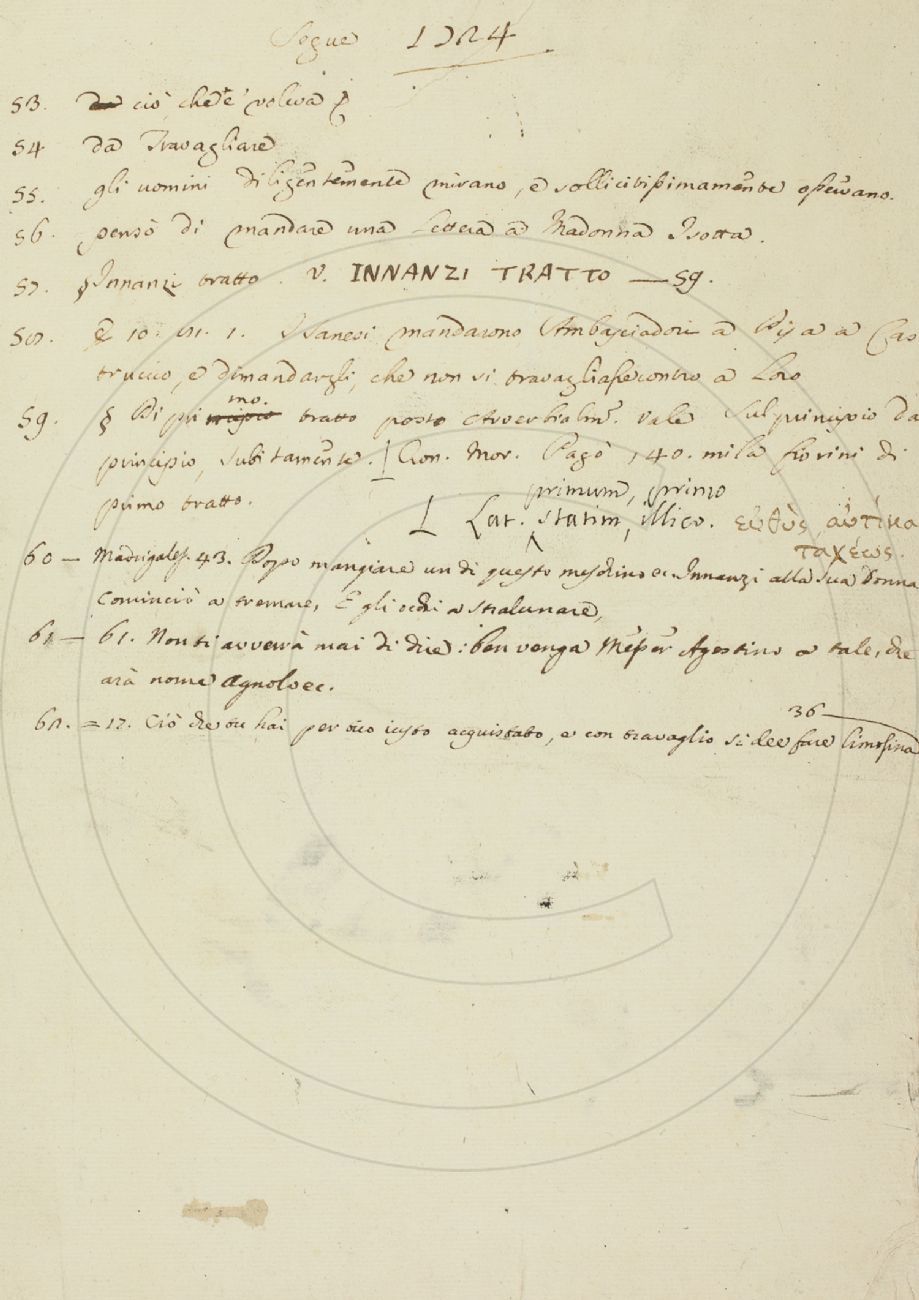 Segue 1724
53. ciò, che e' voleva
54 da Travagliare
55. gli uomini diligentemente mirano, e sollicitissimamente operano.
56. pensò di mandare una Lettera a Madonna Isotta.
57. § Innanzi tratto. V. INNANZI TRATTO — 59.
58. 10. 1. I Sanesi mandarono Ambasciadori a Pisa a Cas
truccio, e dimandargli, che non si travagliasse contro a Loro
59. § Di primo. tratto posto Avverbialm. vale Sul principio da
principio, Subitamente. Cron. Mor. Pagò 140. mila fiorini di
primo tratto.
primum, primo
Lat. statim, illico. εὐθὺς, αὐτίκα
ταχέως.
60 — Madrigales. 43. Dopo mangiare un dì questo meschino ec. Innanzi alla sua Donna
cominciò a tremare, E gli occhi a stralunare,
61 — 61. Non ti avverrà mai di dire: ben venga Messer Agostino a tale, che
arà nome Agnolo ec.
36
62. = 17. Ciò che tu hai per acquistato, e con travaglio si dee fare limosina